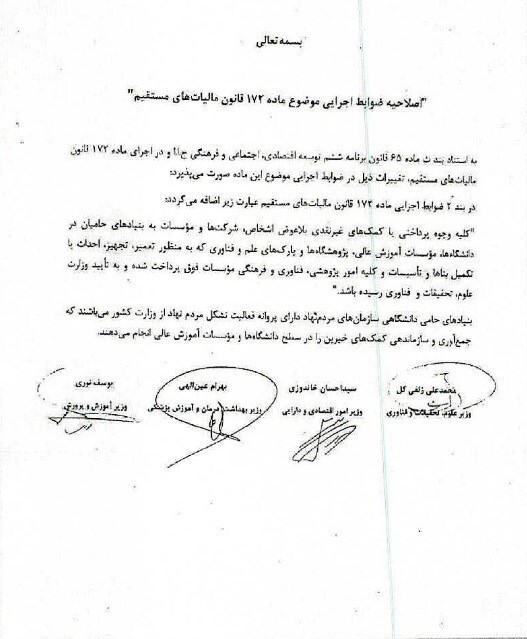 بسمه تعالی
"اصلاحیه ضوابط اجرایی موضوع ماده ۱۷۲ قانون مالیات‌های مستقیم"
به استناد بند ث ماده ۶۵ قانون برنامه ششم توسعه اقتصادی، اجتماعی و فرهنگی ج.ا.ا و در اجرای ماده ۱۷۲ قانون
مالیات‌های مستقیم، تغییرات ذیل در ضوابط اجرایی موضوع این ماده صورت می‌پذیرد:
در بند ۲ ضوابط اجرایی ماده ۱۷۲ قانون مالیات‌های مستقیم عبارت زیر اضافه می‌گردد:
"کلیه وجوه پرداختی یا کمک‌های غیرنقدی بلاعوض اشخاص، شرکت‌ها و مؤسسات به بنیادهای حامیان در
دانشگاه‌ها، مؤسسات آموزش عالی، پژوهشگاه‌ها و پارک‌های علم و فناوری که به منظور تعمیر، تجهیز، احداث یا
تکمیل بناها و تأسیسات و کلیه امور پژوهشی، فناوری و فرهنگی مؤسسات فوق پرداخت شده و به تأیید وزارت
علوم، تحقیقات و فناوری رسیده باشد."
بنیادهای حامی دانشگاهی سازمان‌های مردم‌نهاد دارای پروانه فعالیت تشکل مردم نهاد از وزارت کشور می‌باشند که
جمع‌آوری و سازماندهی کمک‌های خیرین را در سطح دانشگاه‌ها و مؤسسات آموزش عالی انجام می‌دهند.
محمدعلی زلفی گل
وزیر علوم، تحقیقات و فناوری
سیداحسان خاندوزی
وزیر امور اقتصادی و دارایی
بهرام عین‌الهی
وزیر بهداشت، درمان و آموزش پزشکی
یوسف نوری
وزیر آموزش و پرورش